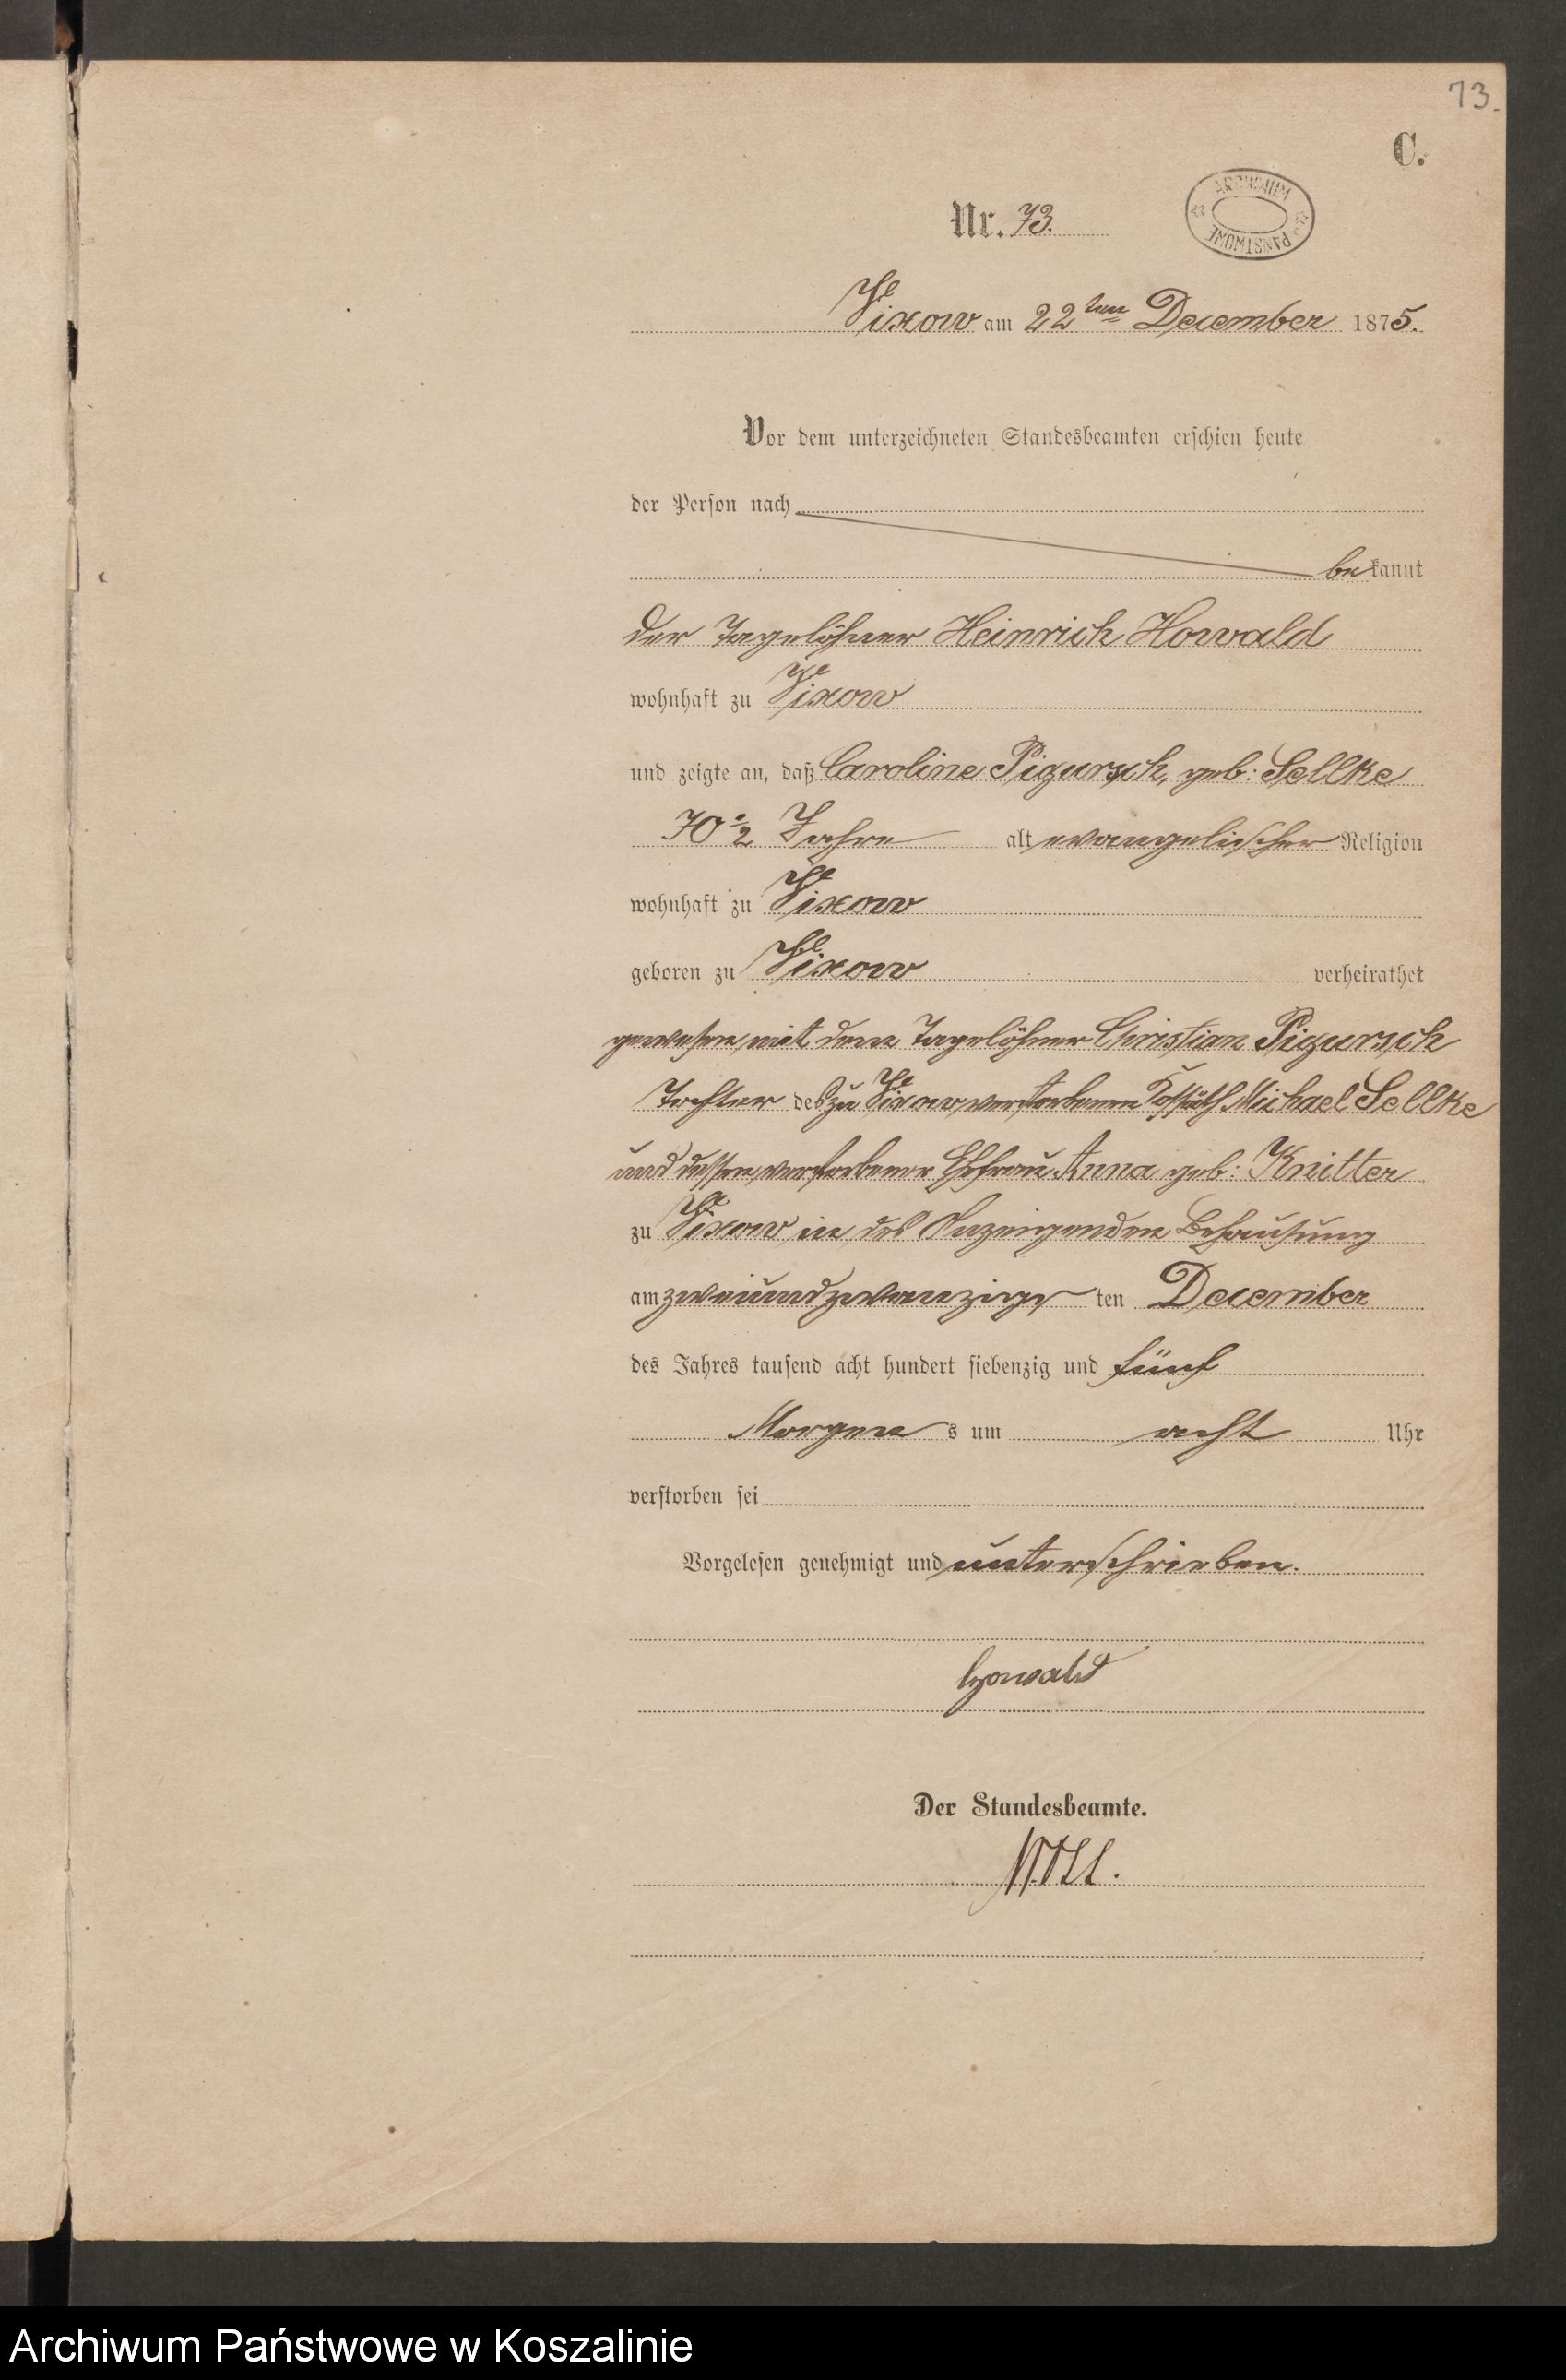 73.
C.
ARCHIWUM PAŃSTWOWE
Nr. 73.
Vixow am 22ten December 1875.
Vor dem unterzeichneten Standesbeamten erschien heute
der Person nach
bekannt
der Tagelöhner Heinrich Howald
wohnhaft zu Vixow
und zeigte an, daß Caroline Pigursch, geb: Sellke
70 1/2 Jahre alt evangelischer Religion
wohnhaft zu Vixow
geboren zu Vixow verheirathet
gewesen mit dem Tagelöhner Christian Pigursch
Tochter des zu Vixow verstorbenen Kossäth Michael Sellke
und dessen verstorbener Ehefrau Anna geb: Knitter
zu Vixow in des Anzeigenden Behausung
am zweiundzwanzigs ten December
des Jahres tausend acht hundert siebenzig und fünf
Morgen s um acht Uhr
verstorben sei
Vorgelesen genehmigt und unterschrieben.
Howald
Der Standesbeamte.
Archiwum Państwowe w Koszalinie